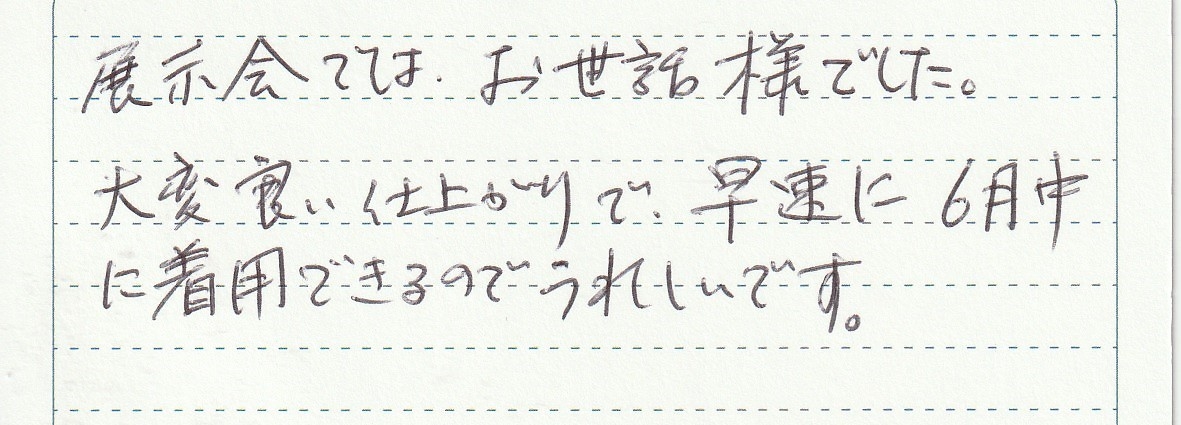 展示会では、お世話様でした。
大変良い仕上がりで、早速に6月中
に着用できるのでうれしいです。